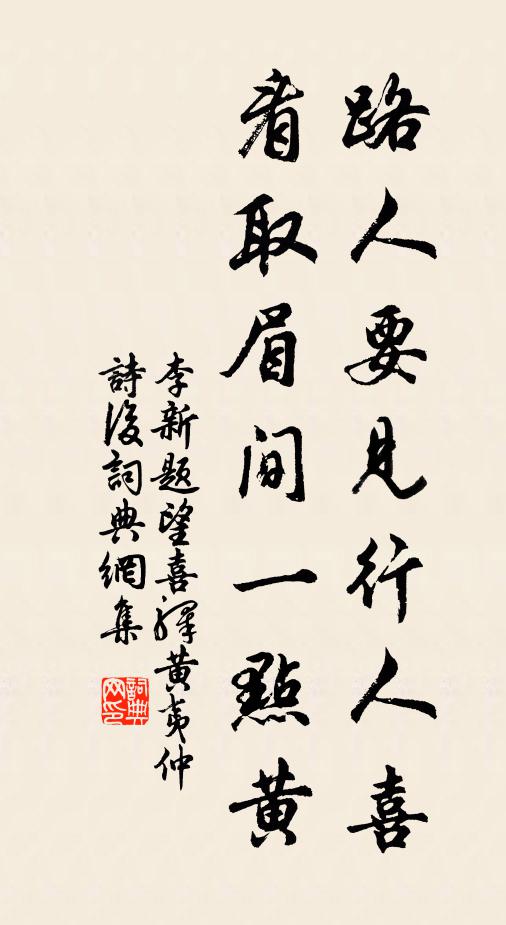 路人要見行人喜
看取眉間一點黃
李新題望喜驛黃夷仲
詩後詞典網集
詞典網印